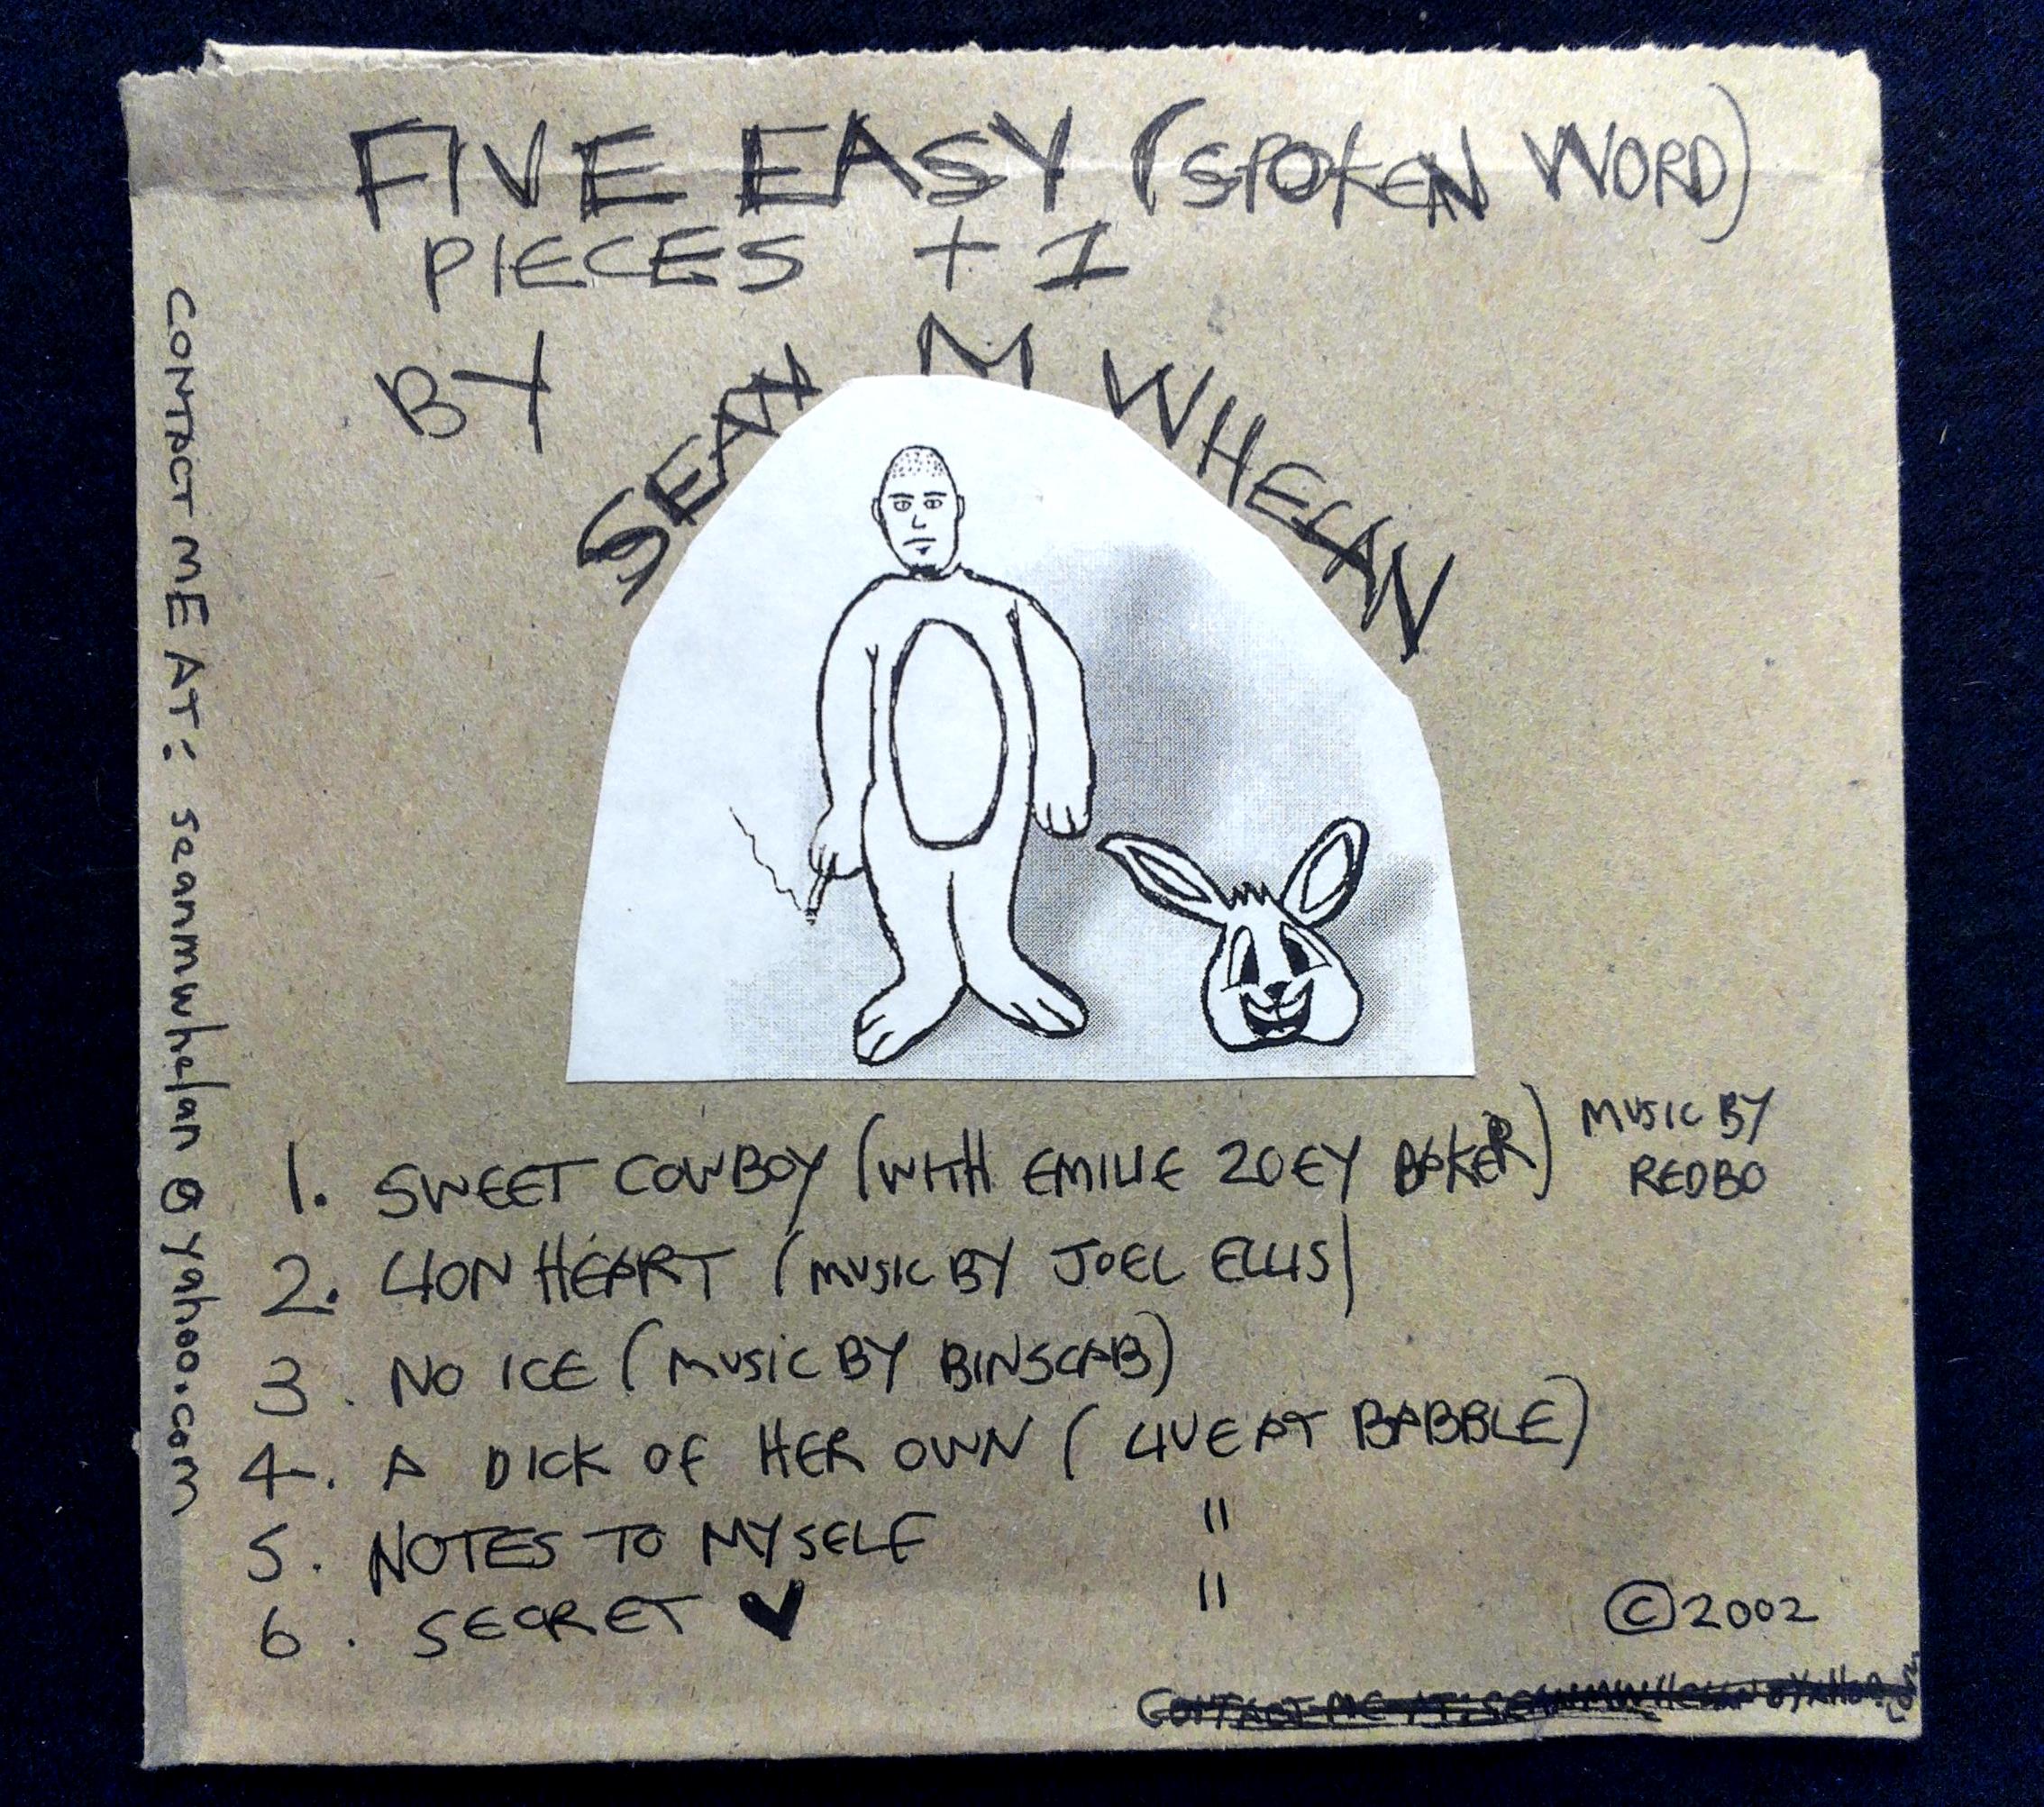 FIVE EASY (SPOKEN WORD)
PIECES + 1
BY SEAN M WHELAN
CONTACT ME AT: seanmwhelan@yahoo.com
1. SWEET COWBOY (WITH EMILIE ZOEY BAKER) MUSIC BY
REDBO
2. LION HEART (MUSIC BY JOEL ELLIS)
3. NO ICE (MUSIC BY BINSCAB)
4. A DICK OF HER OWN (LIVE AT BABBLE)
5. NOTES TO MYSELF "
6. SECRET ♥ "
©2002
CONTACT ME AT: SEANMWHELAN@YAHOO.COM